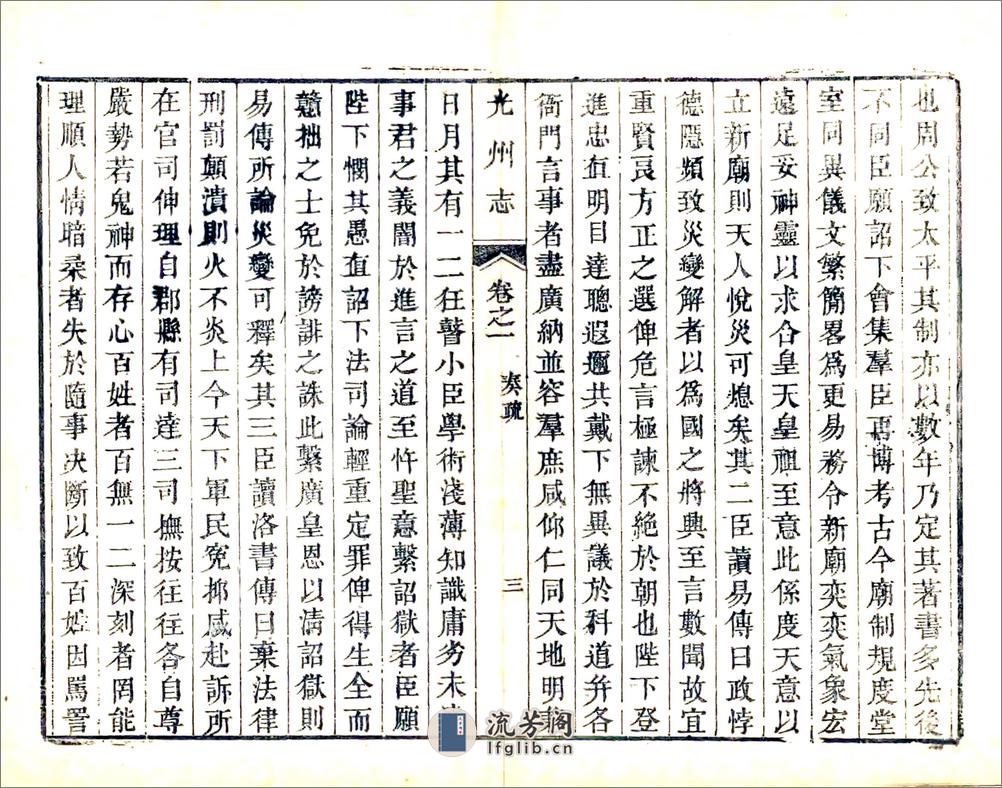 也周公致太平其制亦以數年乃定其著書多先後
不同臣願詔下會集羣臣再博考古今廟制規度堂
室同異儀文繁簡畧爲更易務令新廟奕奕氣象宏
遠足妥神靈以求合皇天皇祖至意此係度天意以
立新廟則天人悅災可熄矣其二臣讀易傳曰政悖
德隱頻致災變解者以爲國之將興至言數聞故宜
重賢良方正之選俾危言極諫不絕於朝也陛下登
進忠直明目達聰遐邇共戴下無異議於科道并各
衙門言事者盡廣納並容羣庶咸仰仁同天地明
光州志 卷之一 奏疏 三
日月其有一二狂瞽小臣學術淺薄知識庸劣未
事君之義闇於進言之道至忤聖意繫詔獄者臣願
陛下憫其愚直詔下法司論輕重定罪俾得生全而
戇拙之士免於謗誹之誅此繫廣皇恩以清詔獄則
易傳所論災變可釋矣其三臣讀洛書傳曰棄法律
刑罰顛潰則火不炎上今天下軍民寃抑感赴訴所
在官司伸理自郡縣有司達三司撫按往往各自尊
嚴勢若鬼神而存心百姓者百無一二深刻者罔能
理順人情暗柔者失於隨事决斷以致百姓因罵詈
流芳閣
lfglib.cn